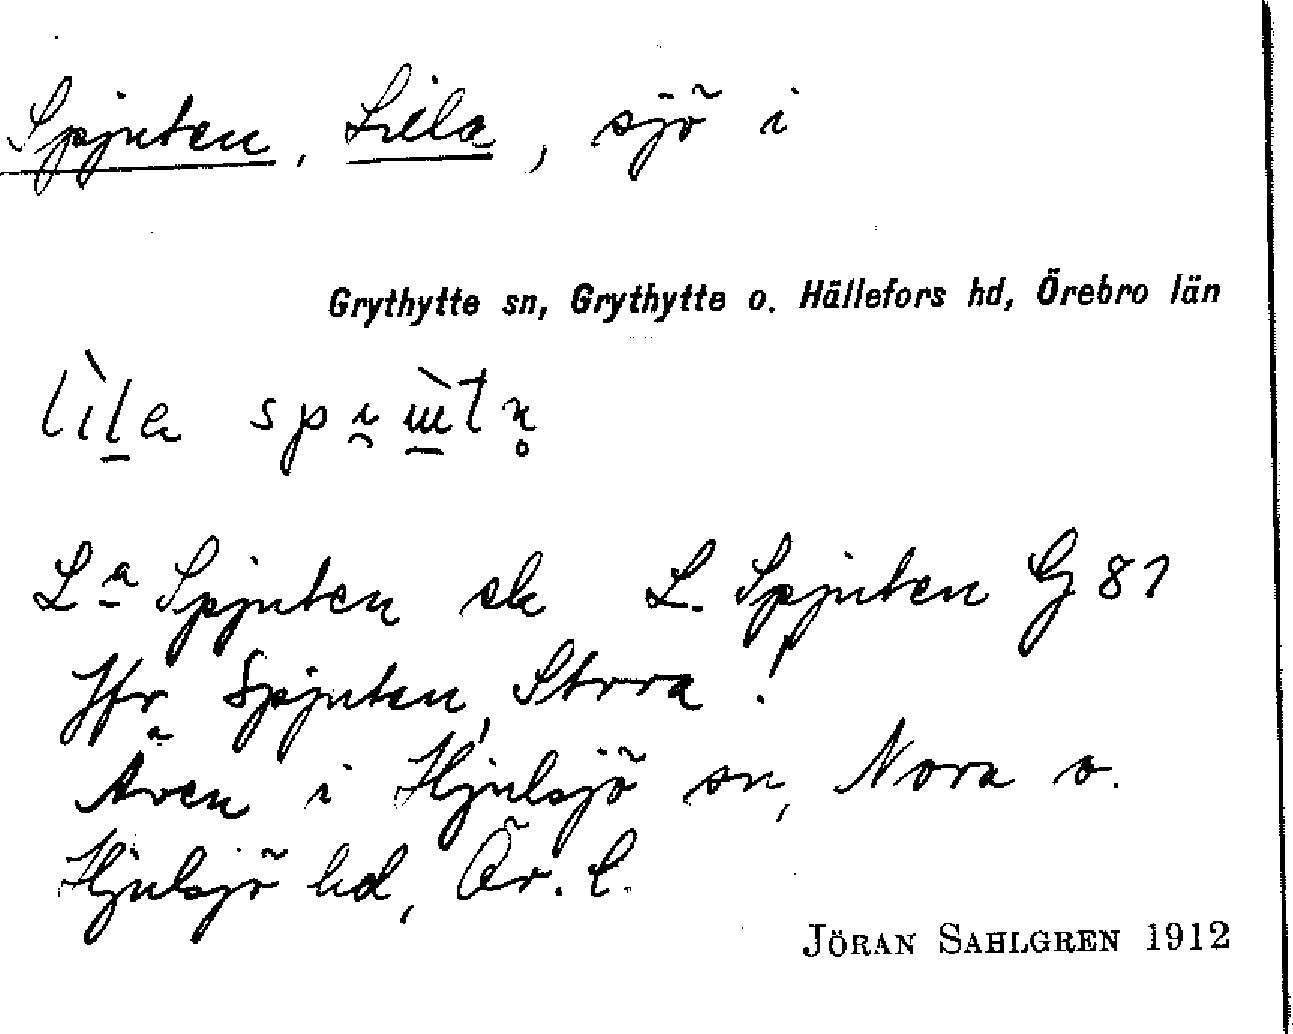 Spjuten, Lilla, sjö i
Grythytte sn, Grythytte o. Hällefors hd, Örebro län
La Spjuten ek L. Spjuten G 81
Jfr Spjuten, Stora!
Även i Hjulsjö sn, Nora o.
Hjulsjö hd, Ör. l.
JÖRAN SAHLGREN 1912